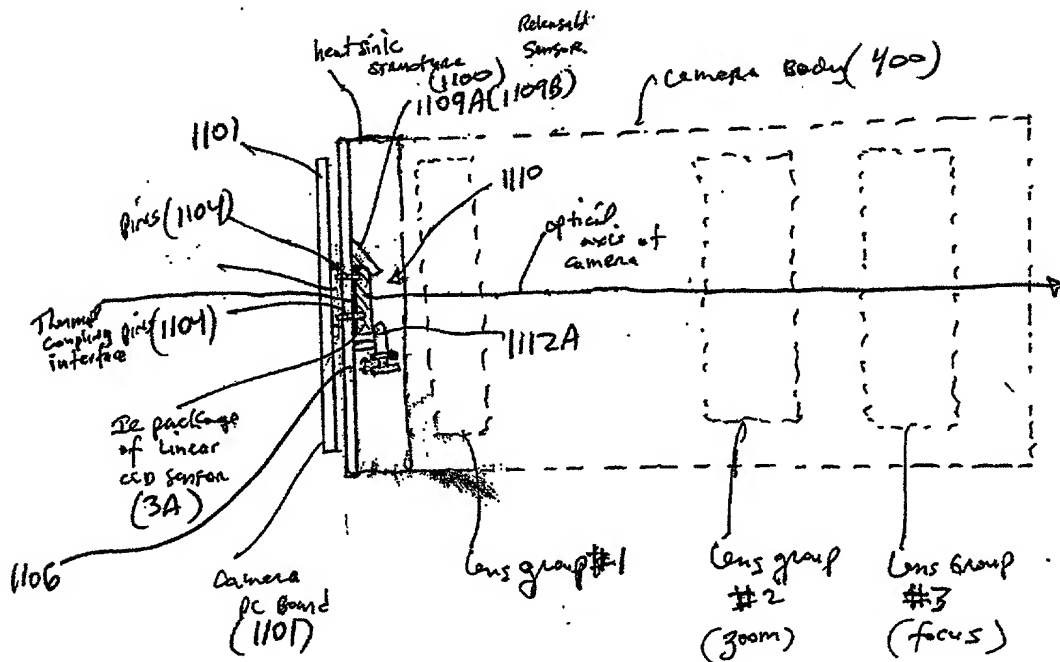 Releasable
Sensor
heatsink
structure
(1100)
1109A(1109B)
camera Body(400)
1101
1110
pins(1104)
optical
axis of
camera
Thermal
coupling
interface
pins(1104)
1112A
IC package
of Linear
CCD sensor
(3A)
1106
Camera
PC Board
(1101)
Lens group#1
Lens group
#2
(zoom)
Lens Group
#3
(focus)